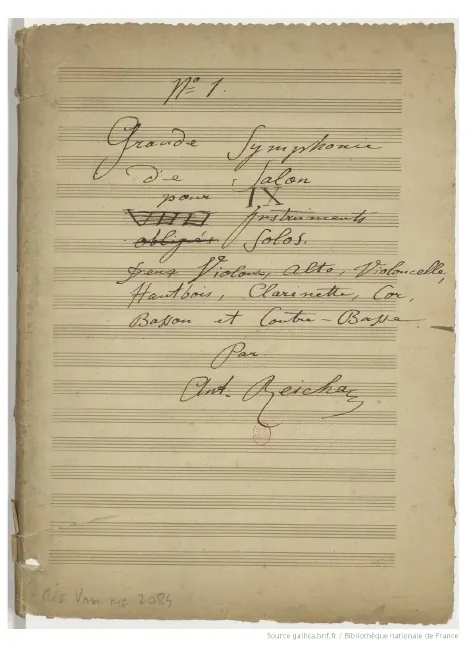 Nº 1.
Grande Symphonie
de Salon
pour IX
Instruments
obligés Solos.
deux Violons, Alto, Violoncelle,
Hautbois, Clarinette, Cor,
Basson et Contre-Basse
Par
Ant. Reicha
Rés Vma ms 2084
Source gallica.bnf.fr / Bibliothèque nationale de France